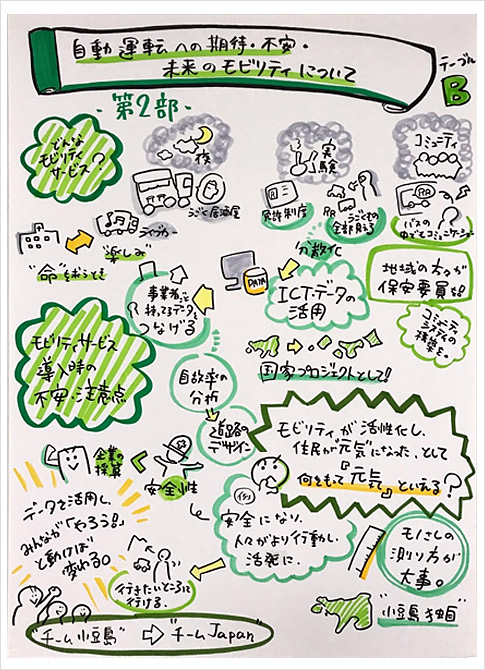 自動運転への期待・不安・
未来のモビリティについて
テーブル
B
-第2部-
どんな
モビリティ
サービス?
夜
実験
コミュニティ
うごく居酒屋
免許制度
うごくもの
全部見える
バスの
中でもコミュニケーション
ライブカー
"楽しみ"
"命"を救うとき
分散化
地域の方々が
保安要員を!
事業者ごと
持ってるデータを
つなげる
DATA
ICT・データの
活用
コミュニティ
システムの
構築を。
モビリティサービス
導入時の
不安・注意点
国家プロジェクトとして!
自故率の
分析
道路の
デザイン
モビリティが活性化し、
住民が"元気"になった、として
何をもって『元気』といえる?
企業の
採算
安全性
データを活用し、
みんなが「やろう!」
と動けば
変わる。
安全になり、
人々がより行動し、
活発に.
モノさしの
測り方が
大事。
行きたいところに
行ける.
"小豆島独自"
"チーム小豆島" ⇨ "チームJapan"